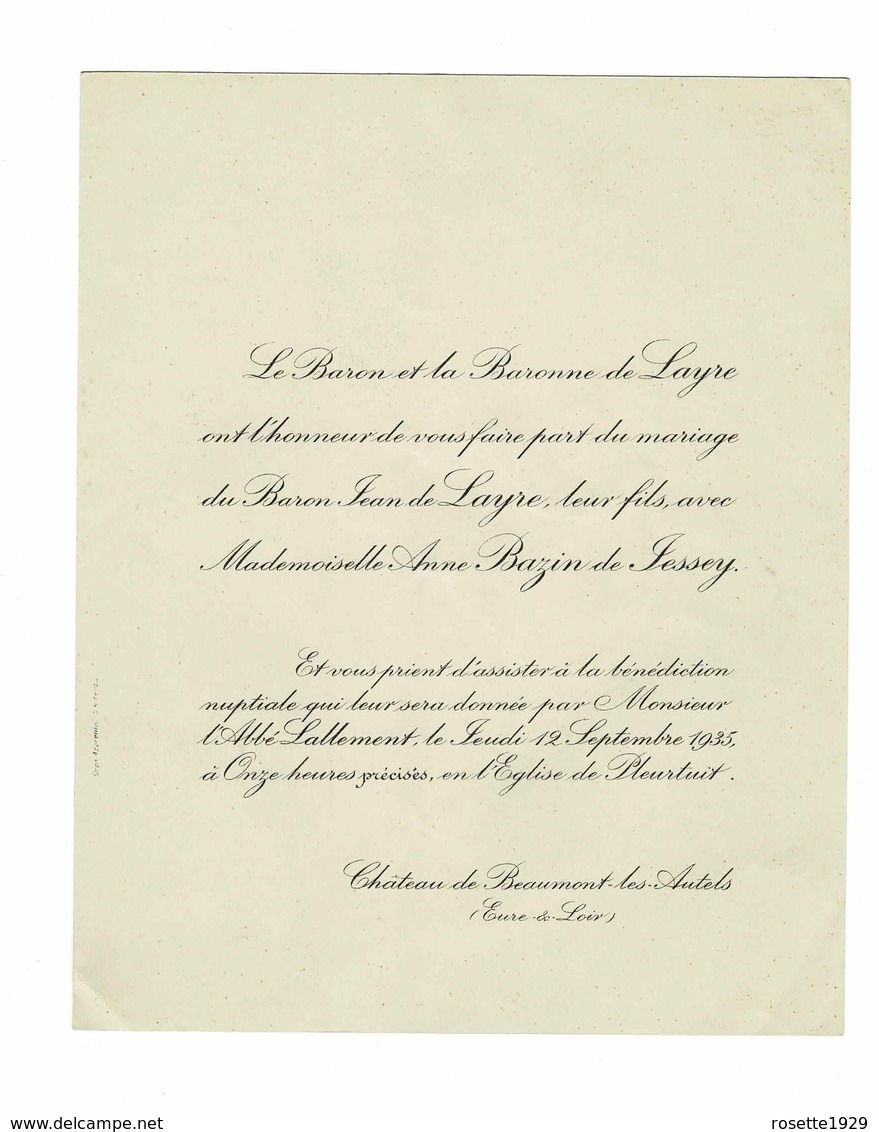 Le Baron et la Baronne de Layre
ont l'honneur de vous faire part du mariage
du Baron Jean de Layre, leur fils, avec
Mademoiselle Anne Bazin de Jessey.
Et vous prient d'assister à la bénédiction
nuptiale qui leur sera donnée par Monsieur
l'Abbé Lallement, le Jeudi 12 Septembre 1935,
à Onze heures précises, en l'Eglise de Pleurtuit.
Château de Beaumont-les-Autels
(Eure-&-Loir)
www.delcampe.net
rosette1929